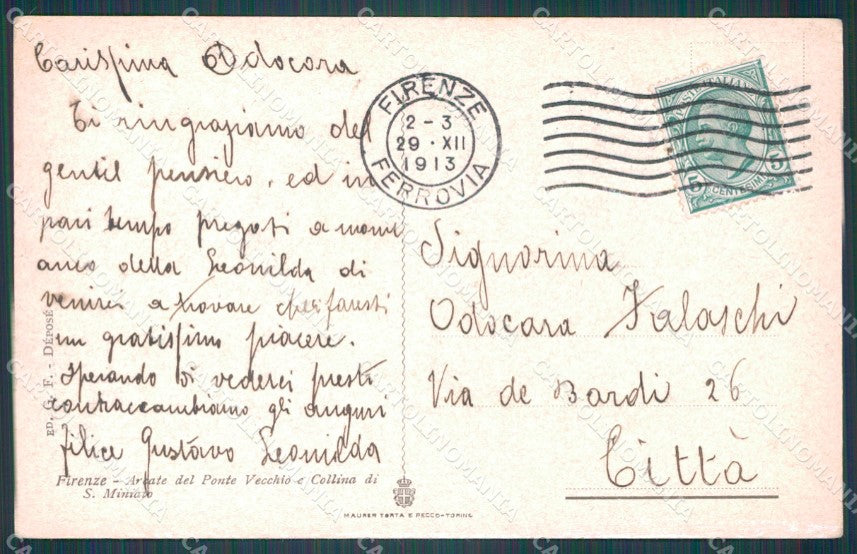 Carissima Odocara
Ti ringraziamo del
gentil pensiero, ed in
pari tempo pregoti a nome
anco della Leonilda di
venirci a trovare che faresti
un gratissimo piacere.
Sperando di vederci presto
contraccambiamo gli auguri
Felice Gustavo Leonilda
Firenze - Arcate del Ponte Vecchio e Collina di
S. Miniato
ED. G. F. - DÉPOSÉ
FIRENZE
2 - 3
29 · XII
1913
FERROVIA
POSTE ITALIANE
5 CENTESIMI 5
Signorina
Odocara Falaschi
Via de Bardi 26
Città
MAURER TORTA E PECCO - TORINO
CARTOLINOMANIA